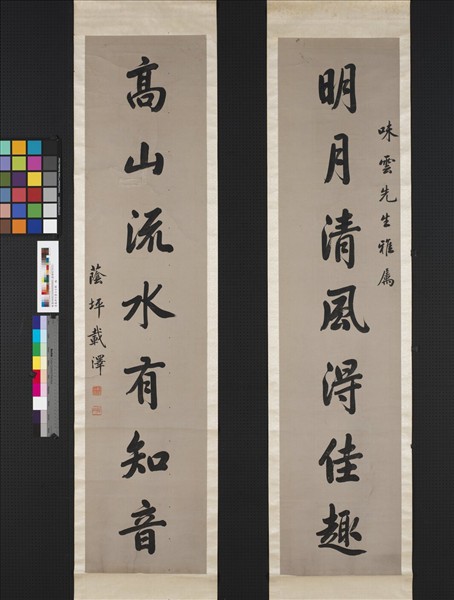 味雲先生雅屬
明月清風得佳趣
高山流水有知音
蔭坪載澤